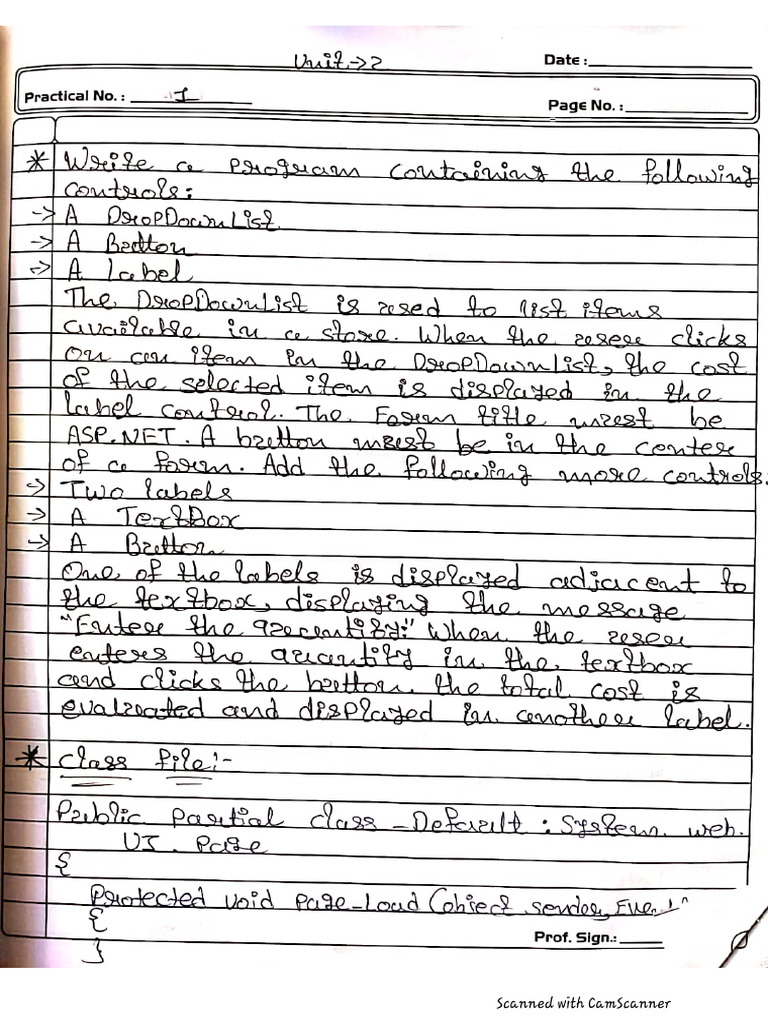 Unit → 2
Date :
Practical No. : 1
Page No. :
* Write a program containing the following
controls:
→ A DropDownList
→ A Button
→ A label
The DropDownList is used to list items
available in a store. When the user clicks
on an item in the DropDownList, the cost
of the selected item is displayed in the
label control. The Form title must be
ASP.NET. A button must be in the center
of a form. Add the following more controls:
→ Two labels
→ A TextBox
→ A Button
One of the labels is displayed adjacent to
the textbox, displaying the message
"Enter the quantity:" When the user
enters the quantity in the textbox
and clicks the button, the total cost is
evaluated and displayed in another label.
* Class file:-
Public partial class _Default : System. web.
UI. Page
{
Protected void Page_Load (object sender,
{
}
Prof. Sign.:
Scanned with CamScanner